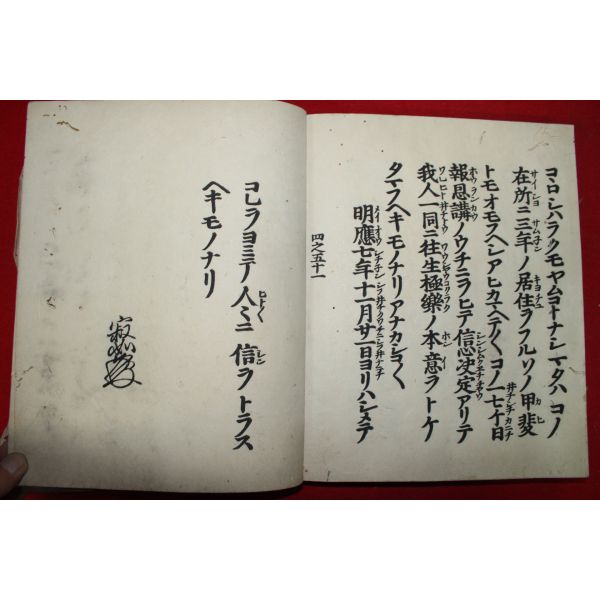 コヽロシハラクモヤムコトナシマタハコノ
在所ニ三年ノ居住ヲフルソノ甲斐
トモオモフヘシアヒカマヘテ〱コノ一七ケ日
報恩講ノウチニヲヒテ信心决定アリテ
我人一同ニ往生極樂ノ本意ヲトケ
タマフヘキモノナリアナカシコ〱
明應七年十一月廿一日ヨリハシメテ
四之五十一
コレヲヨミテ人々ニ信ヲトラス
ヘキモノナリ
寂如